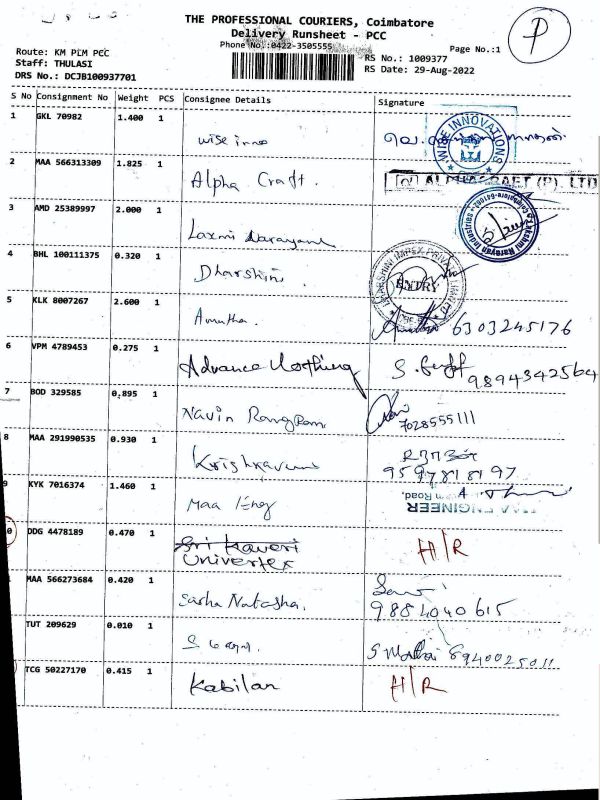 THE PROFESSIONAL COURIERS, Coimbatore
Delivery Runsheet - PCC
Phone No.:0422-3505555
P
Page No.:1
Route: KM PLM PCC
Staff: THULASI
DRS No.: DCJB100937701
RS No.: 1009377
RS Date: 29-Aug-2022
S No Consignment No Weight PCS Consignee Details Signature
1 GKL 70982 1.400 1 Wise inno
WISE INNOVATIONS
2 MAA 566313309 1.825 1 Alpha Craft.
ALPHACRAFT (P). LTD
3 AMD 25389997 2.000 1 Laxmi Narayana
Lakshmi Narayan Industries
4 BHL 100111375 0.320 1 Dharshini
ENTRY
5 KLK 8007267 2.600 1 Amutha. 6303245176
6 VPM 4789453 0.275 1 Advance Clothing 9894342564
7 BOD 329585 0.895 1 Navin Rangram 7028555111
8 MAA 291990535 0.930 1 9597818197
9 KYK 7016374 1.460 1 Maa Eng
ENGINEER
Road.
0 DDG 4478189 0.470 1 Sri Kaveri
Univertex H/R
MAA 566273684 0.420 1 Sasha Natasha. 9884040615
TUT 209629 0.010 1 8940025011
TCG 50227170 0.415 1 Kabilan H/R